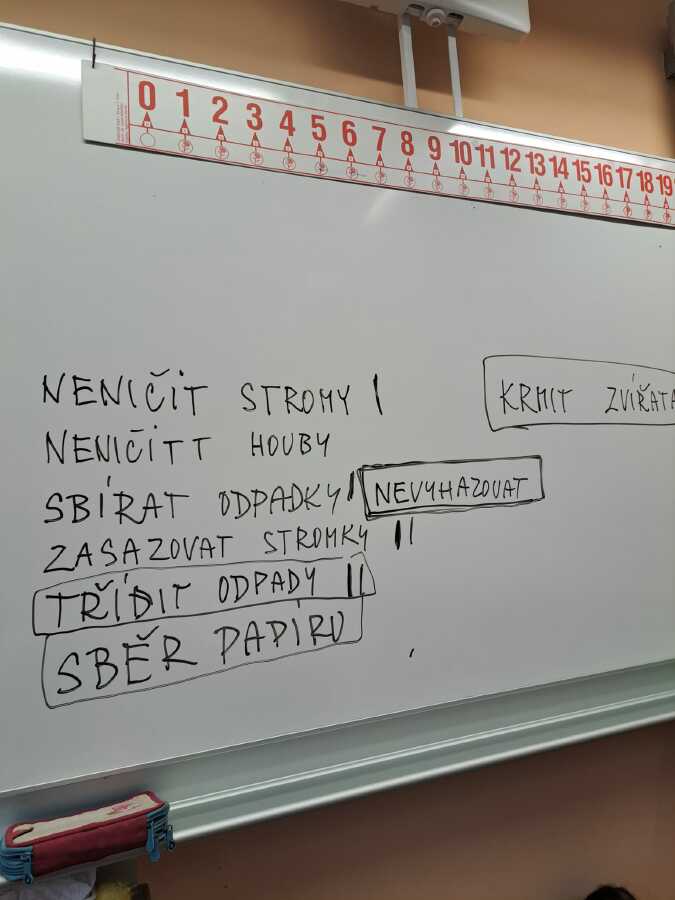 0 1 2 3 4 5 6 7 8 9 10 11 12 13 14 15 16 17 18 19
NENIČIT STROMY
KRMIT ZVÍŘATA
NENIČITT HOUBY
SBÍRAT ODPADKY
NEVYHAZOVAT
ZASAZOVAT STROMKY
TŘÍDIT ODPADY
SBĚR PAPÍRU